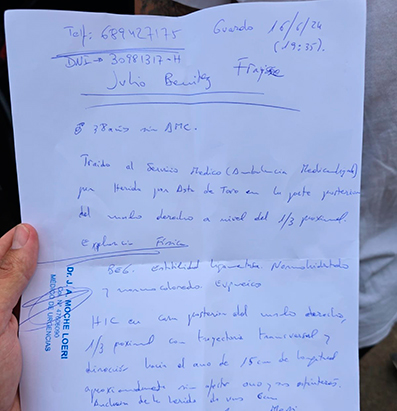 Telf: 689427175
Guardo 16/6/24
(19:35).
DNI → 30981317-H
Julio Benitez
♂ 38 años sin AMC.
Traido al Servicio Medico (Ambulancia Medicalizada)
por Herida por Asta de Toro en la parte posterior
del muslo derecho a nivel del 1/3 proximal.
Exploración Física
BEG. Estabilidad hemodinámica. Normohidratado
y normocoloreado Eupneico
HIC en cara posterior del muslo derecho,
1/3 proximal con trayectoria transversal y
dirección hacia el ano de 15cm de longitud
aproximadamente sin afectar ano y sus esfínteres.
de la herida de unos 6cm
Dr. J. A. MOCHE LOERI
MÉDICO DE URGENCIAS